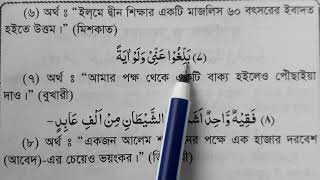 (৬) অর্থ : “ইলমে দ্বীন শিক্ষার একটি মাজলিস ৬০ বৎসরের ইবাদত
হইতে উত্তম।” (মিশকাত)
(৭) بَلِّغُوْا عَنِّىْ وَلَوْ اٰيَةً
(৭) অর্থ : “আমার পক্ষ থেকে একটি বাক্য হইলেও পৌছাইয়া
দাও।” (বুখারী)
(৮) فَقِيْهٌ وَّاحِدٌ الشَّيْطَانِ مِنْ اَلْفِ عَابِدٍ-
(৮) অর্থ : “একজন আলেম পক্ষে এক হাজার দরবেশ
(আবেদ)-এর চেয়েও ভয়ংকর।”